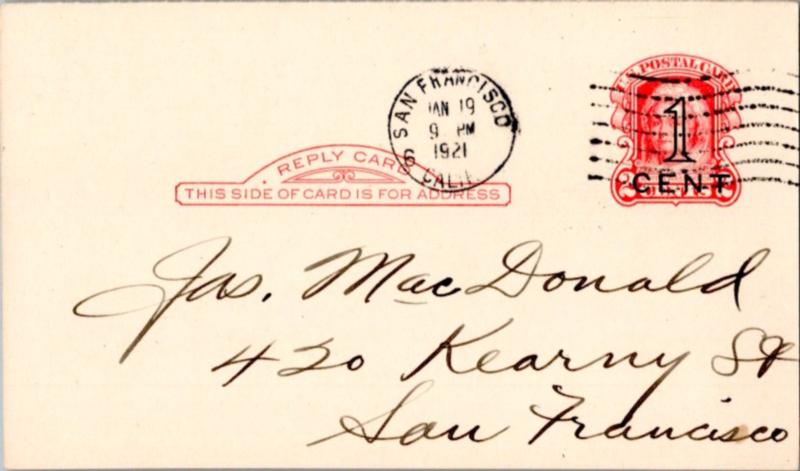 SAN FRANCISCO
JAN 19
9 PM
1921
6 CALIF.
U.S. POSTAL CARD
1
CENT
REPLY CARD
THIS SIDE OF CARD IS FOR ADDRESS
Jas. MacDonald
420 Kearny St
San Francisco